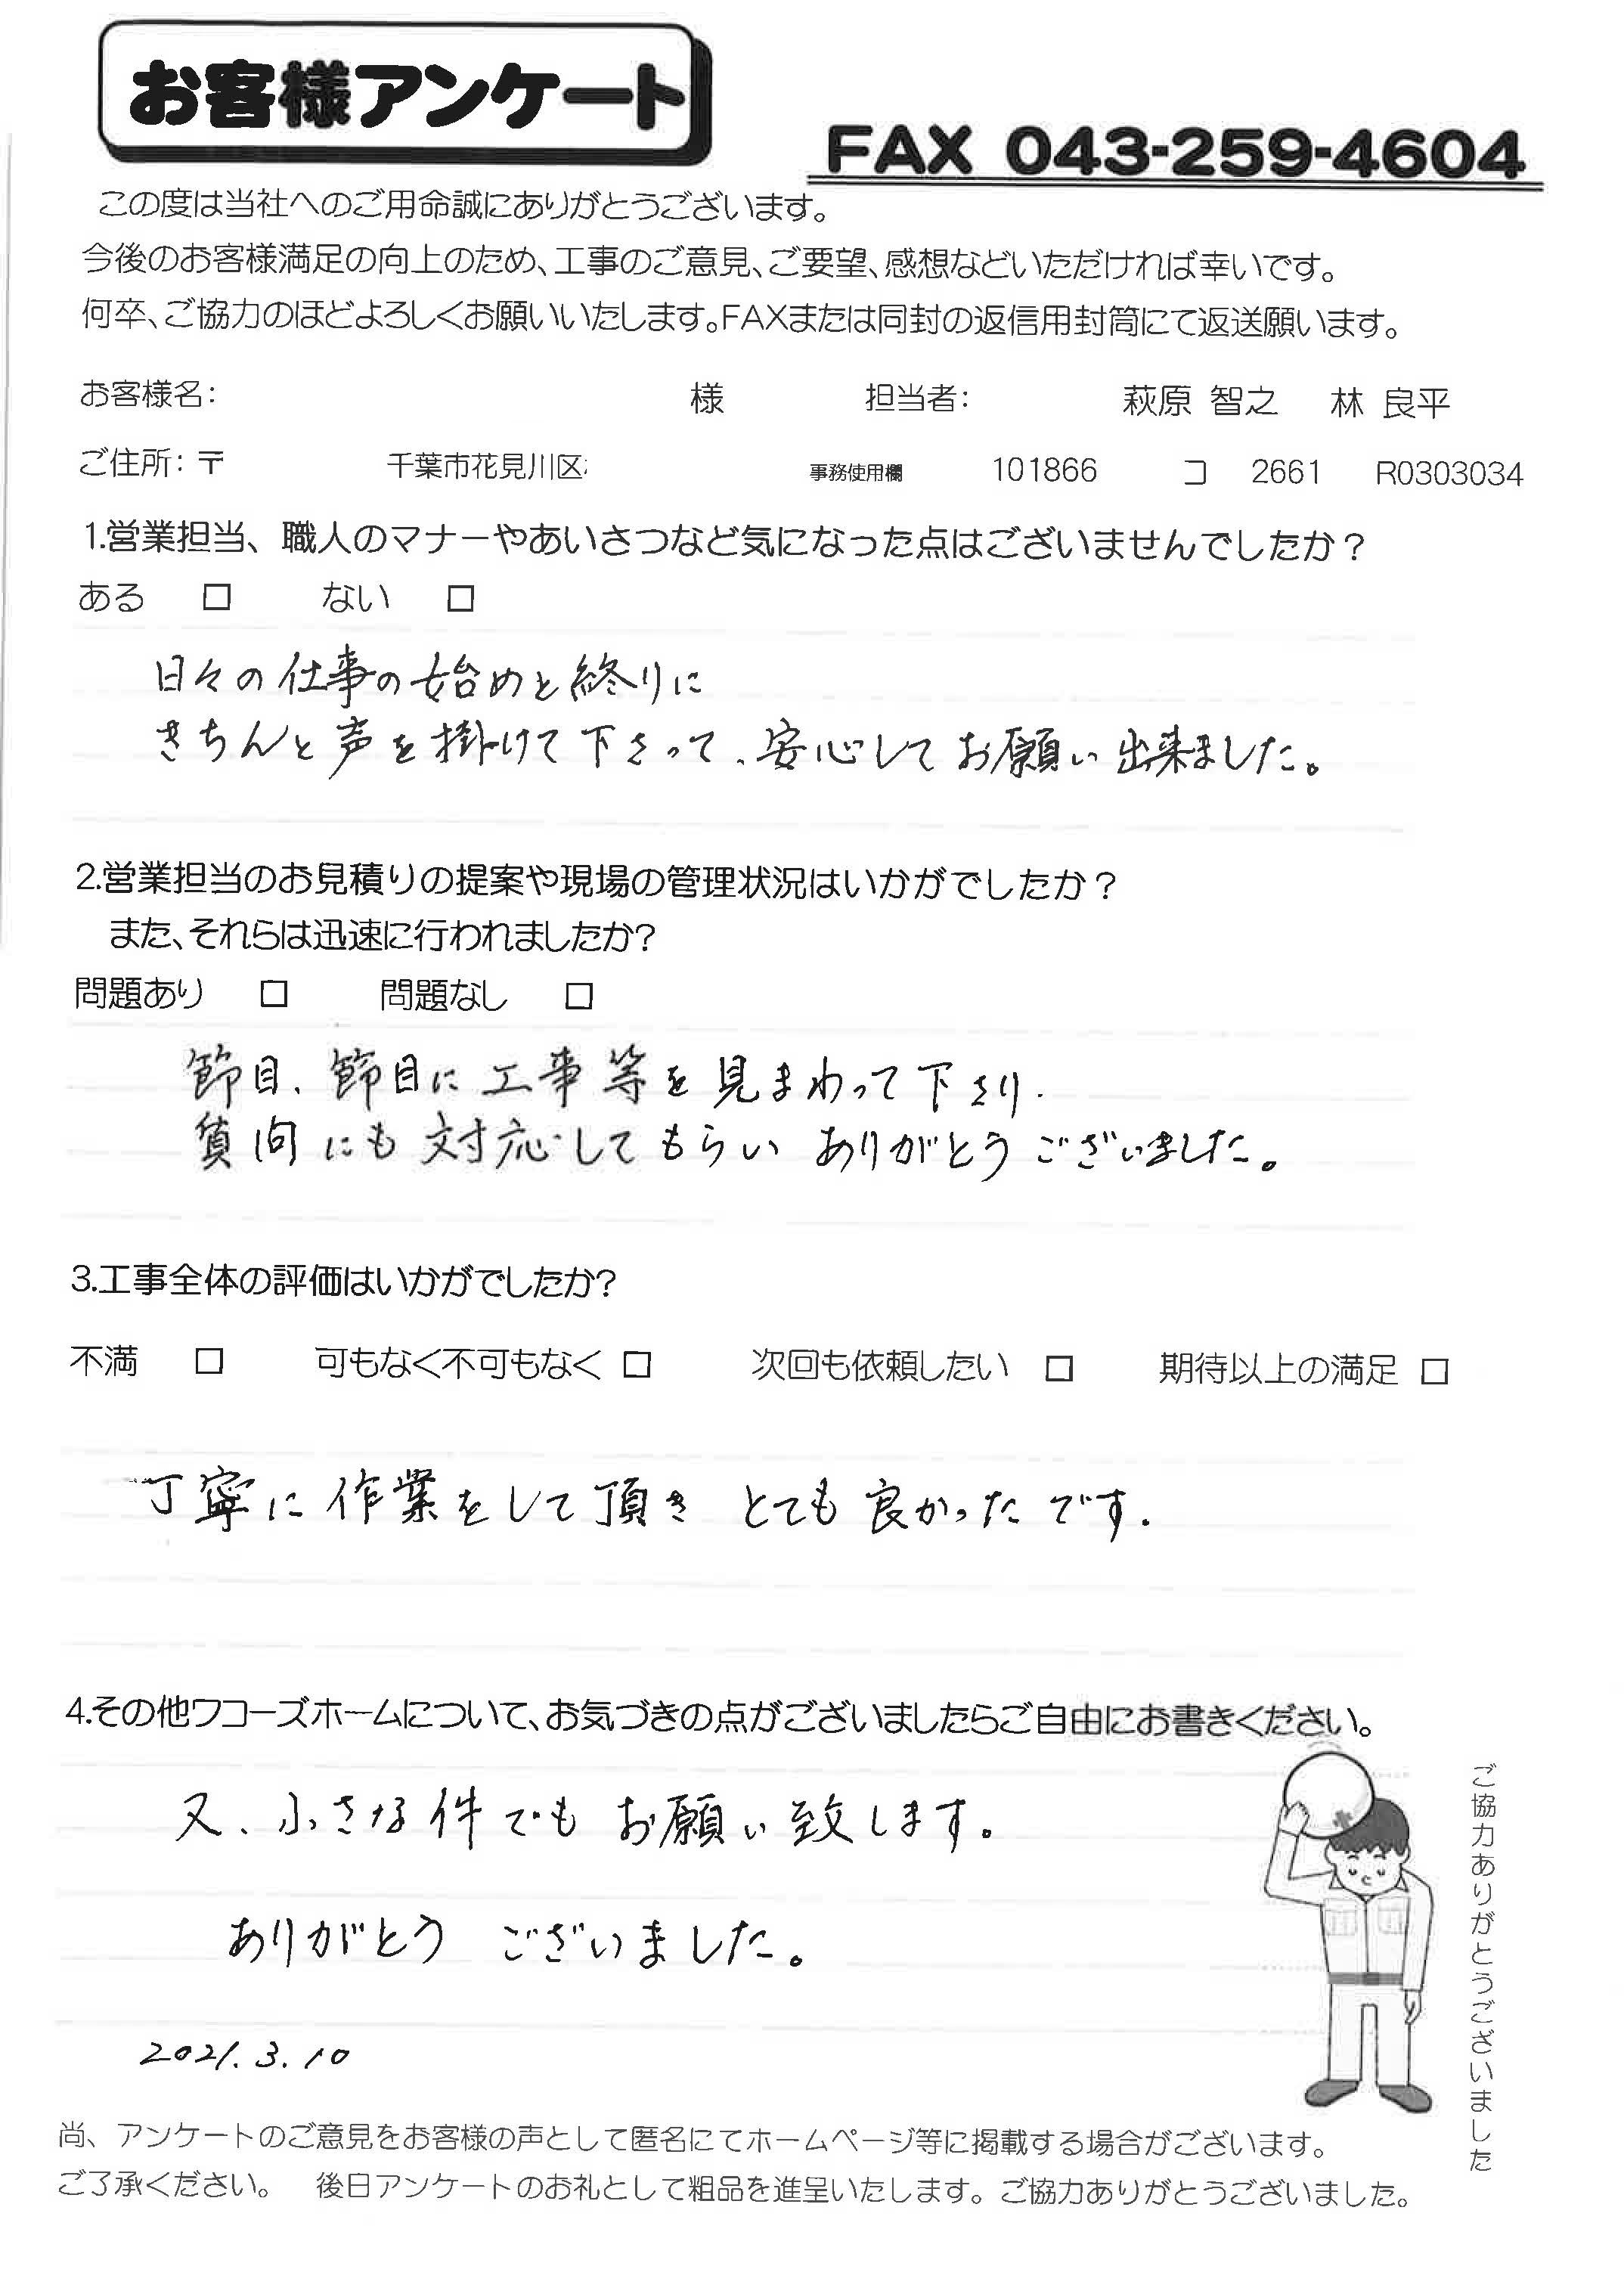 お客様アンケート
FAX 043-259-4604
この度は当社へのご用命誠にありがとうございます。
今後のお客様満足の向上のため、工事のご意見、ご要望、感想などいただければ幸いです。
何卒、ご協力のほどよろしくお願いいたします。FAXまたは同封の返信用封筒にて返送願います。
お客様名: 様 担当者: 萩原 智之 林 良平
ご住所:〒 千葉市花見川区 事務使用欄 101866 コ 2661 R0303034
1.営業担当、職人のマナーやあいさつなど気になった点はございませんでしたか？
ある □ ない □
日々の仕事の始めと終りに
きちんと声を掛けて下さって、安心してお願い出来ました。
2.営業担当のお見積りの提案や現場の管理状況はいかがでしたか？
また、それらは迅速に行われましたか?
問題あり □ 問題なし □
節目、節目に工事等を見まわって下さり、
質問にも対応してもらいありがとうございました。
3.工事全体の評価はいかがでしたか?
不満 □ 可もなく不可もなく □ 次回も依頼したい □ 期待以上の満足 □
丁寧に作業をして頂き とても良かったです.
4.その他ワコーズホームについて、お気づきの点がございましたらご自由にお書きください。
又、小さな件でもお願い致します。
ありがとう ございました。
2021.3.10
ご協力ありがとうございました
尚、アンケートのご意見をお客様の声として匿名にてホームページ等に掲載する場合がございます。
ご了承ください。 後日アンケートのお礼として粗品を進呈いたします。ご協力ありがとうございました。